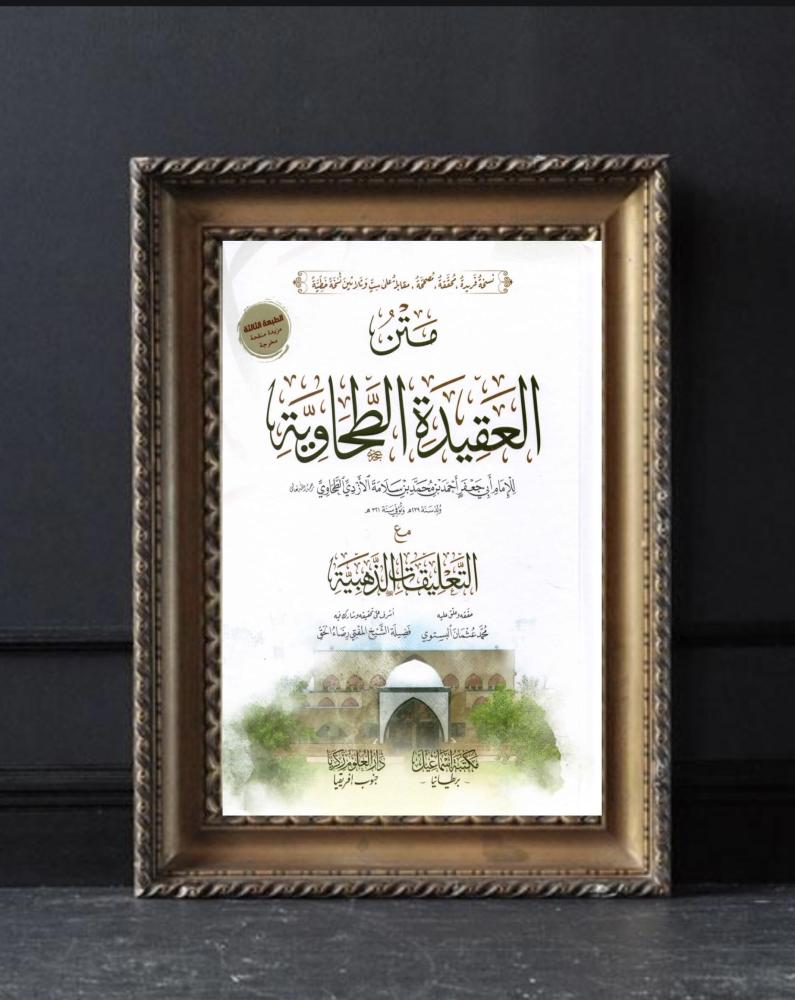 نسخةٌ فريدةٌ، محقَّقةٌ، مصحَّحةٌ، مقابلةٌ على ستٍّ وثلاثين نُسخةً خطِّيَّةً
الطبعة الثالثة
مزيدة منقحة
مخرجة
مَتْنُ
العَقِيدَةِ الطَّحَاوِيَّةِ
لِلإِمَامِ أَبِي جَعْفَرٍ أَحْمَدَ بْنِ مُحَمَّدِ بْنِ سَلَامَةَ الأَزْدِيِّ الطَّحَاوِيِّ رحمه الله تعالى
وُلِدَ سَنَة ٢٣٩هـ وَتُوُفِّيَ سَنَة ٣٢١ هـ
مع
التَّعْلِيقَاتِ الذَّهَبِيَّةِ
حققه وعلق عليه
محمد عثمان البستوي
أشرف على تحقيقه وشارك فيه
فضيلة الشيخ المفتي رضاء الحق
مكتبة إسماعيل
- بريطانيا -
دار العلوم زكريا
جنوب افريقيا